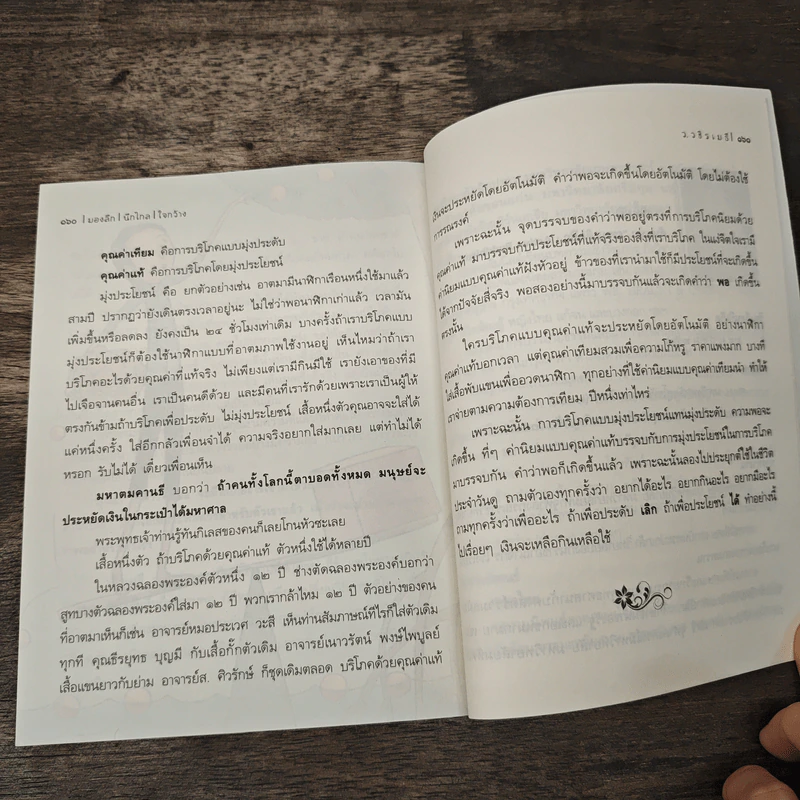 ๑๖๐ | มองลึก | นึกไกล | ใจกว้าง
คุณค่าเทียม คือการบริโภคแบบมุ่งประดับ
คุณค่าแท้ คือการบริโภคโดยมุ่งประโยชน์
มุ่งประโยชน์ คือ ยกตัวอย่างเช่น อาตมามีนาฬิกาเรือนหนึ่งใช้มาแล้ว
สามปี ปรากฏว่ายังเดินตรงเวลาอยู่นะ ไม่ใช่ว่าพอนาฬิกาเก่าแล้ว เวลามัน
เพิ่มขึ้นหรือลดลง ยังคงเป็น ๒๔ ชั่วโมงเท่าเดิม บางครั้งถ้าเราบริโภคแบบ
มุ่งประโยชน์ก็ต้องใช้นาฬิกาแบบที่อาตมภาพใช้งานอยู่ เห็นไหมว่าถ้าเรา
บริโภคอะไรด้วยคุณค่าที่แท้จริง ไม่เพียงแต่เรามีกินมีใช้ เรายังเอาของที่มี
ไปเจือจานคนอื่น เราเป็นคนดีด้วย และมีคนที่เรารักด้วยเพราะเราเป็นผู้ให้
ตรงกันข้ามถ้าบริโภคเพื่อประดับ ไม่มุ่งประโยชน์ เสื้อหนึ่งตัวคุณอาจจะใส่ได้
แค่หนึ่งครั้ง ใส่อีกกลัวเพื่อนจำได้ ความจริงอยากใส่มากเลย แต่ทำไม่ได้
หรอก รับไม่ได้ เดี๋ยวเพื่อนเห็น
มหาตมคานธี บอกว่า ถ้าคนทั้งโลกนี้ตาบอดทั้งหมด มนุษย์จะ
ประหยัดเงินในกระเป๋าได้มหาศาล
พระพุทธเจ้าท่านรู้ทันกิเลสของคนก็เลยโกนหัวซะเลย
เสื้อหนึ่งตัว ถ้าบริโภคด้วยคุณค่าแท้ ตัวหนึ่งใช้ได้หลายปี
ในหลวงฉลองพระองค์ตัวหนึ่ง ๑๒ ปี ช่างตัดฉลองพระองค์บอกว่า
สูทบางตัวฉลองพระองค์ใส่มา ๑๒ ปี พวกเรากล้าไหม ๑๒ ปี ตัวอย่างของคน
ที่อาตมาเห็นก็เช่น อาจารย์หมอประเวศ วะสี เห็นท่านสัมภาษณ์ทีไรก็ใส่ตัวเดิม
ทุกที คุณธีรยุทธ บุญมี กับเสื้อกั๊กตัวเดิม อาจารย์เนาวรัตน์ พงษ์ไพบูลย์
เสื้อแขนยาวกับย่าม อาจารย์ส. ศิวรักษ์ ก็ชุดเดิมตลอด บริโภคด้วยคุณค่าแท้
ว.วชิรเมธี |
มันจะประหยัดโดยอัตโนมัติ คำว่าพอจะเกิดขึ้นโดยอัตโนมัติ โดยไม่ต้องใช้
การรณรงค์
เพราะฉะนั้น จุดบรรจบของคำว่าพออยู่ตรงที่การบริโภคนิยมด้วย
คุณค่าแท้ มาบรรจบกับประโยชน์ที่แท้จริงของสิ่งที่เราบริโภค ในแง่จิตใจเรามี
ค่านิยมแบบคุณค่าแท้ฝังหัวอยู่ ข้าวของที่เรานำมาใช้ก็มีประโยชน์ที่จะเกิดขึ้น
ได้จากปัจจัยสี่จริง พอสองอย่างนี้มาบรรจบกันแล้วจะเกิดคำว่า พอ เกิดขึ้น
ตรงนั้น
ใครบริโภคแบบคุณค่าแท้จะประหยัดโดยอัตโนมัติ อย่างนาฬิกา
คุณค่าแท้บอกเวลา แต่คุณค่าเทียมสวมเพื่อความโก้หรู ราคาแพงมาก บางที
ใส่เสื้อพับแขนเพื่ออวดนาฬิกา ทุกอย่างที่ใช้ค่านิยมแบบคุณค่าเทียมนำ ทำให้
เราจ่ายตามความต้องการเทียม ปีหนึ่งเท่าไหร่
เพราะฉะนั้น การบริโภคแบบมุ่งประโยชน์แทนมุ่งประดับ ความพอจะ
เกิดขึ้น ที่ๆ ค่านิยมแบบคุณค่าแท้บรรจบกับการมุ่งประโยชน์ในการบริโภค
มาบรรจบกัน คำว่าพอก็เกิดขึ้นแล้ว เพราะฉะนั้นลองไปประยุกต์ใช้ในชีวิต
ประจำวันดู ถามตัวเองทุกครั้งว่า อยากได้อะไร อยากกินอะไร อยากมีอะไร
ถามทุกครั้งว่าเพื่ออะไร ถ้าเพื่อประดับ เลิก ถ้าเพื่อประโยชน์ ได้ ทำอย่างนี้
ไปเรื่อยๆ เงินจะเหลือกินเหลือใช้